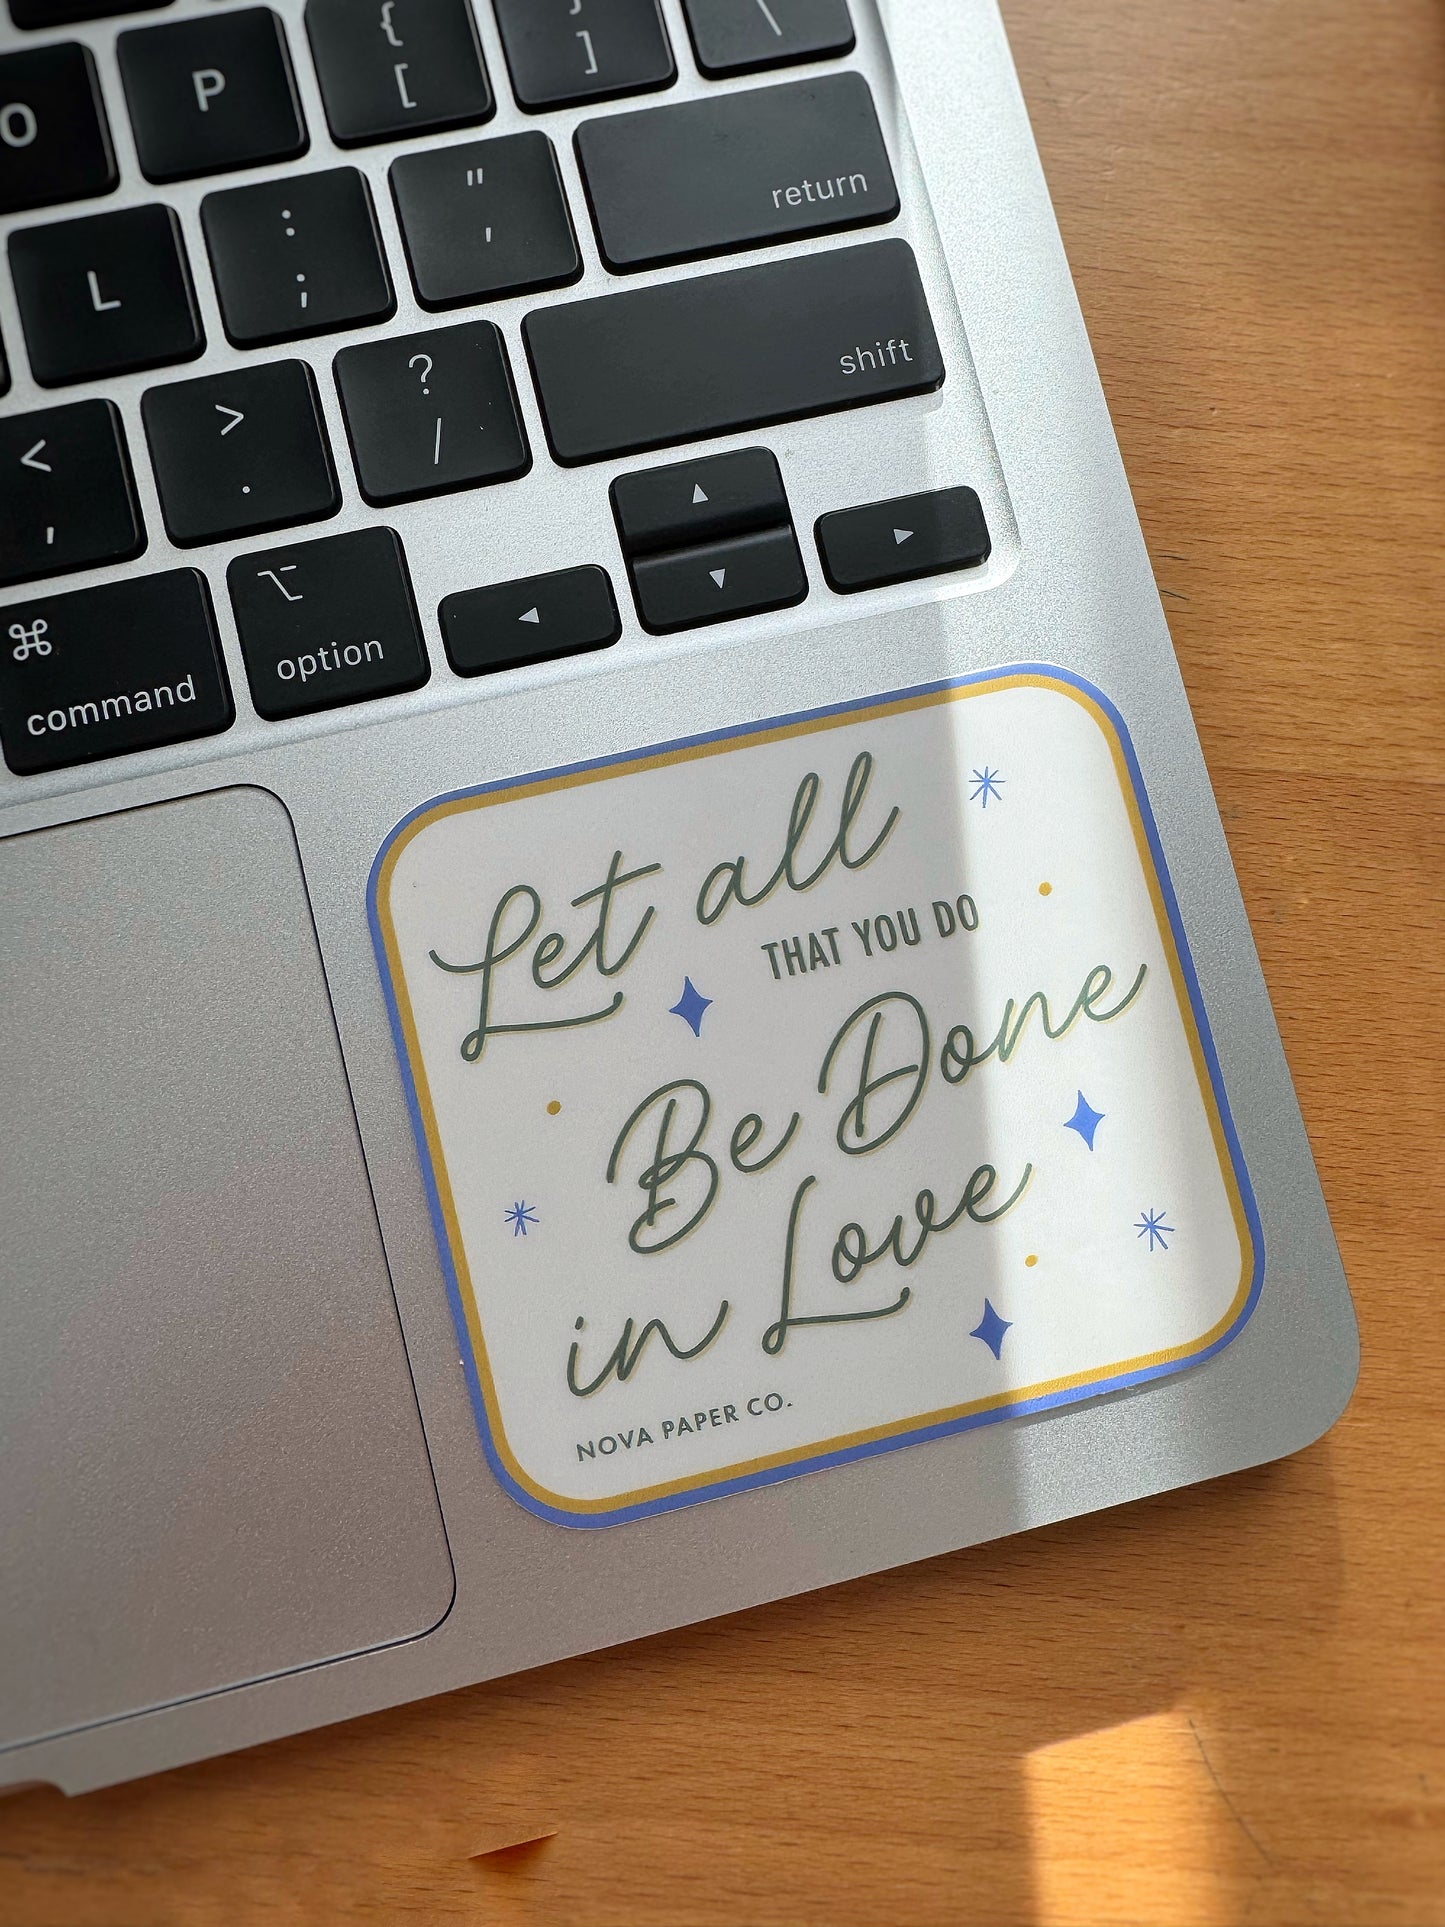 O
P
{
[
}
]
\
L
:
;
"
'
return
<
,
>
.
?
/
shift
⌘
command
⌥
option
▲
◀
▼
▶
Let all
THAT YOU DO
Be Done
in Love
NOVA PAPER CO.